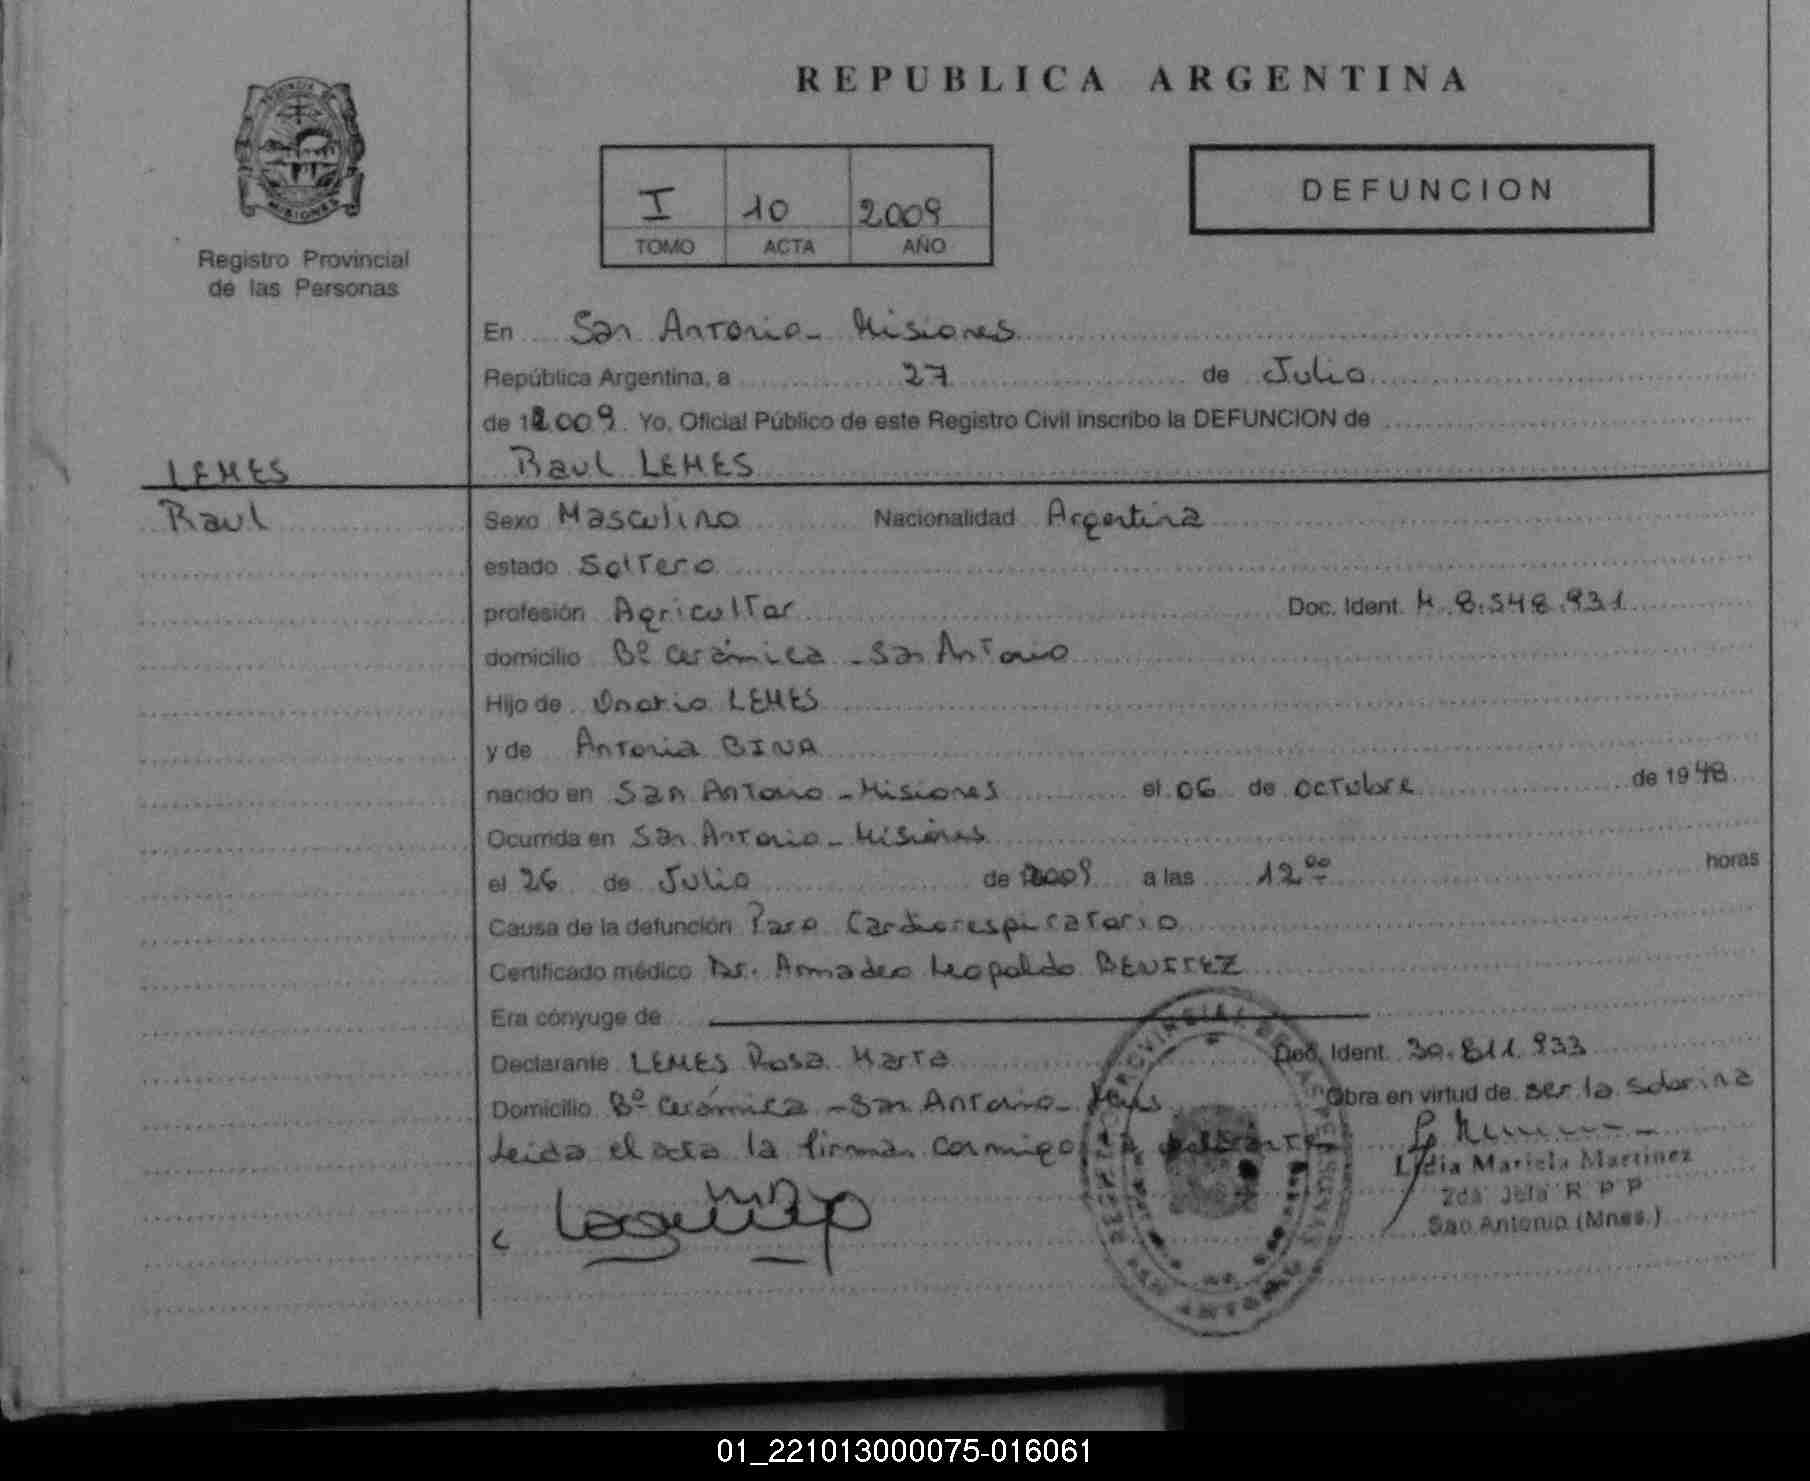 REPUBLICA ARGENTINA
PROVINCIA DE
MISIONES
Registro Provincial
de las Personas
I 10 2009
TOMO ACTA AÑO
DEFUNCION
En San Antonio - Misiones
República Argentina, a 27 de Julio
de 2009. Yo, Oficial Público de este Registro Civil inscribo la DEFUNCION de
Raul LEMES
LEMES
Raul
Sexo Masculino Nacionalidad Argentina
estado Soltero
profesión Agricultor Doc. Ident. M 8.548.931
domicilio Bº Cerámica - San Antonio
Hijo de Onorio LEMES
y de Antonia BINA
nacido en San Antonio - Misiones el 06 de octubre de 1948
Ocurrida en San Antonio - Misiones
el 26 de Julio de 2009 a las 12 00 horas
Causa de la defunción Paro Cardiorespiratorio
Certificado médico Dr. Armadeo Leopoldo BENITEZ
Era cónyuge de
Declarante LEMES Rosa Marta Doc. Ident. 30.811.933
Domicilio Bº Cerámica - San Antonio - Mnes Obra en virtud de ser la sobrina
Leida el acta la firman conmigo la declarante
Lidia Mariela Martinez
2da Jefa R P P
San Antonio (Mnes.)
01_221013000075-016061